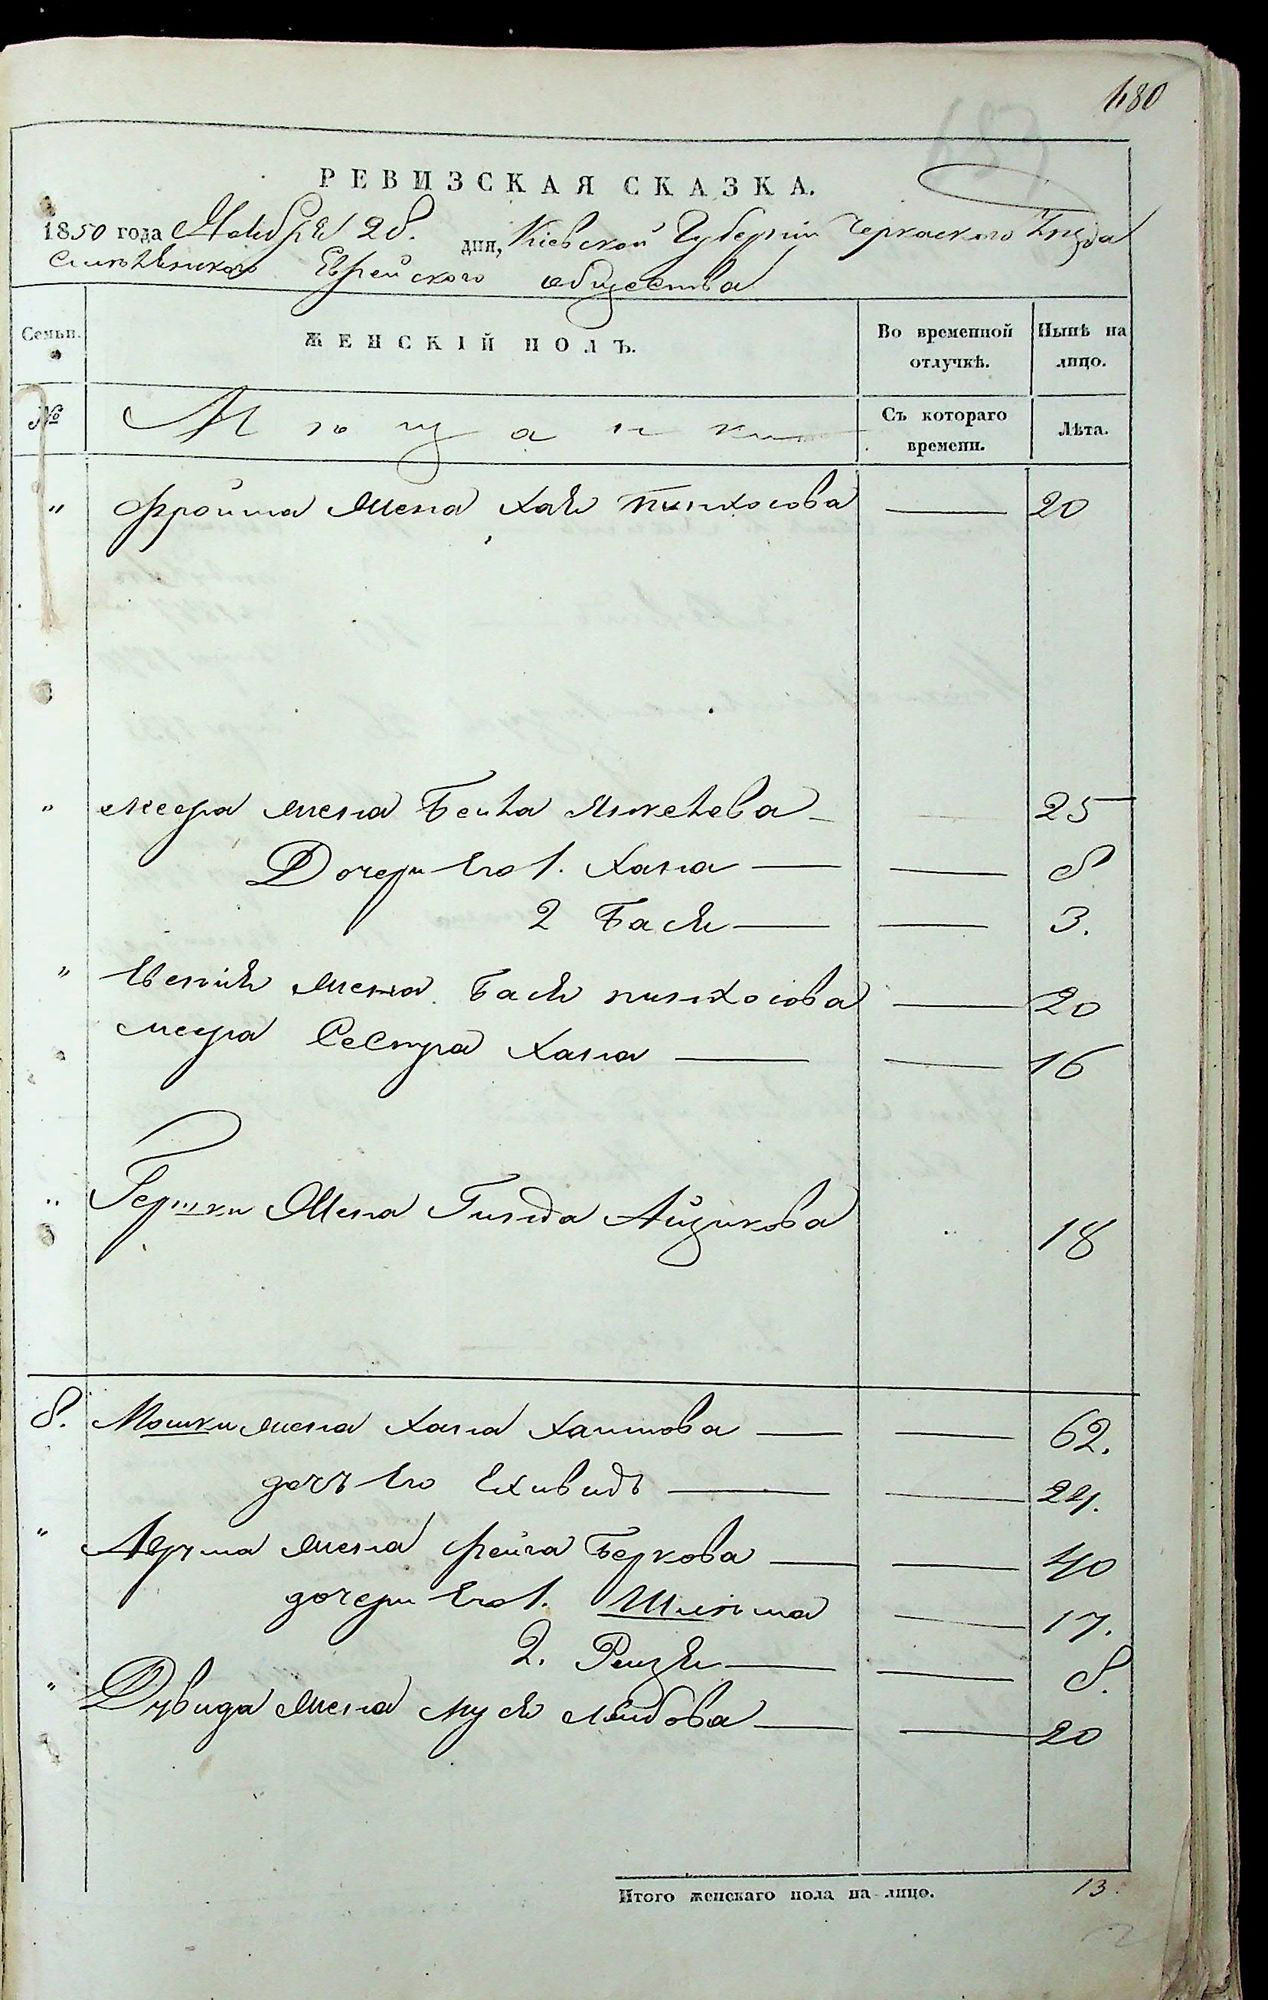 480
РЕВИЗСКАЯ СКАЗКА.
1850 года Ноября 28. дня, Кіевской Губерніи Черкаского Уезда
Еврейского общества
Семьи.
ЖЕНСКІЙ ПОЛЪ.
Во временной отлучкѣ.
Нынѣ на лицо.
№
Мѣщанки
Съ котораго времени.
Лѣта.
" Фроима жена Хая Пинхосова 20
" Меера жена Бейла Янкелева 25
Дочери его 1. Хана 8
2 Бася 3.
" жена Бася Пинхосова 20
Меера Сестра Хана 16
" Гершки Жена Гинда Айзикова 18
8. Мошки жена Хана Хаимова 62.
дочь его Ехивидъ 24.
" жена Фейга Беркова 40
дочери его 1. 17.
2. Рейзя 8.
" Дувида жена Муся Лейбова 20
Итого женскаго пола на лицо. 13.